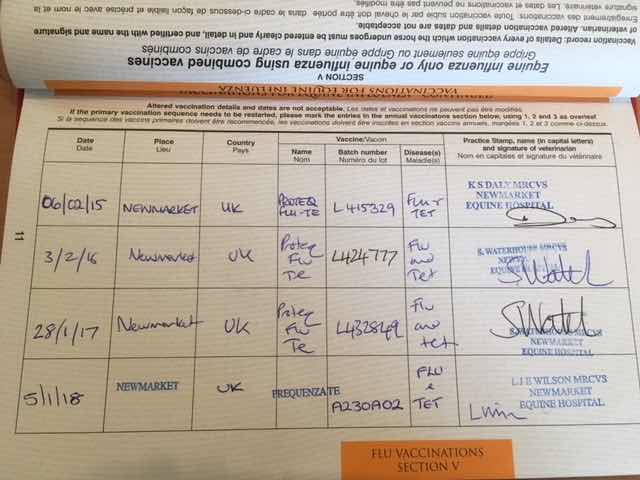 VACCINATIONS FOR EQUINE INFLUENZA
SECTION V
Equine influenza only or equine influenza using combined vaccines
Grippe équine seulement ou Grippe équine dans le cadre de vaccins combinés
Vaccination record: Details of every vaccination which the horse undergoes must be entered clearly and in detail, and certified with the name and signature
of veterinarian. Altered vaccination details and dates are not acceptable.
Enregistrement des vaccinations: Toute vaccination subie par le cheval doit être portée dans le cadre ci-dessous de façon lisible et précise avec le nom et la
signature vétérinaire. Les dates et vaccinations ne peuvent pas être modifiés.
Altered vaccination details and dates are not acceptable. Les dates et vaccinations ne peuvent pas être modifiés.
If the primary vaccination sequence needs to be restarted, please mark the entries in the annual vaccinations section below, using 1, 2 and 3 as overleaf
Si la sequence des vaccins primaires doivent être recommencée, les vaccinations doivent être inscrites en section vaccins annuels, marquées 1, 2 et 3 comme ci-dessus.
Date
Date
Place
Lieu
Country
Pays
Vaccine/Vaccin
Name
Nom
Batch number
Numéro du lot
Disease(s)
Maladie(s)
Practice Stamp, name (in capital letters)
and signature of veterinarian
Nom en capitales et signature du vétérinaire
06/02/15
NEWMARKET
UK
PROTEQ
FLU-TE
L415329
FLU +
TET
K S DALY MRCVS
NEWMARKET
EQUINE HOSPITAL
3/2/16
Newmarket
UK
Proteq
Flu
Te
L424777
Flu
and
Tet
S. WATERHOUSE MRCVS
28/1/17
Newmarket
UK
Proteq
Flu
Te
L432849
Flu
and
tet
S. WATERHOUSE MRCVS
NEWMARKET
EQUINE HOSPITAL
5/1/18
NEWMARKET
UK
PREQUENZA TE
A230A02
FLU
&
TET
L J E WILSON MRCVS
NEWMARKET
EQUINE HOSPITAL
11
FLU VACCINATIONS
SECTION V